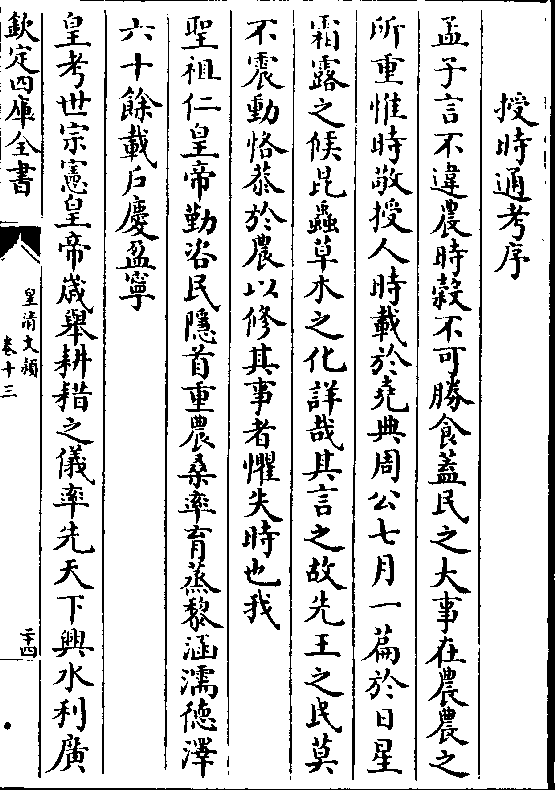 授時通考序
孟子言不違農時穀不可勝食蓋民之大事在農農之
所重惟時敬授人時載於堯典周公七月一篇於日星
霜露之候昆蟲草木之化詳哉其言之故先王之民莫
不震動恪恭於農以修其事者懼失時也我
聖祖仁皇帝勤咨民隱首重農桑率育蒸黎涵濡德澤
六十餘載戶慶盈寧
皇考世宗憲皇帝歳舉耕耤之儀率先天下興水利廣
欽定四庫全書
皇清文穎
卷十三
二十四